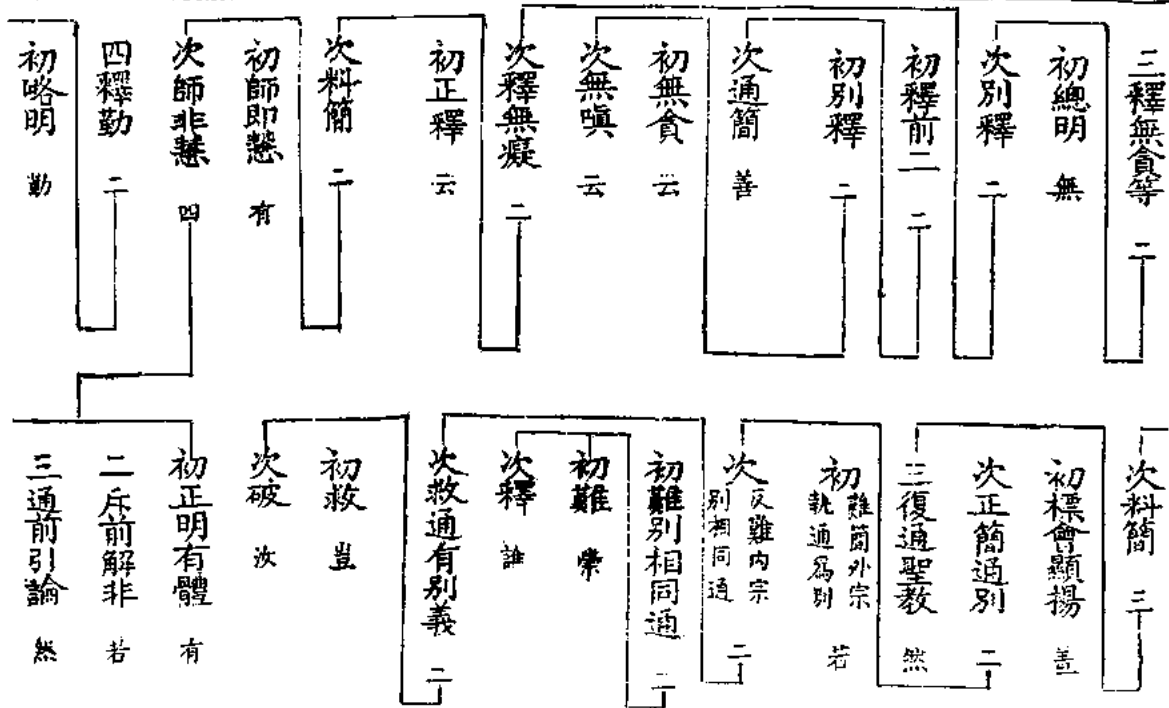 三釋無貪等 二
初總明 無
次別釋 二
初釋前二 二
初別釋 二
次通簡 善
初無貪 云
次無嗔 云
次釋無癡 二
初正釋 云
次料簡 二
初師即慧 有
次師非慧 四
四釋勤 二
初略明 勤
次料簡 三
初標會顯揚 善
次正簡通別 二
三復通聖教 然
初難簡外宗執通為別 若
次反難內宗別相同通 二
初難別相同通 二
初難
次釋 誰
次救通有別義 二
初救 豈
次破 汝
初正明有體 有
二斥前解非 若
三通前引論 然